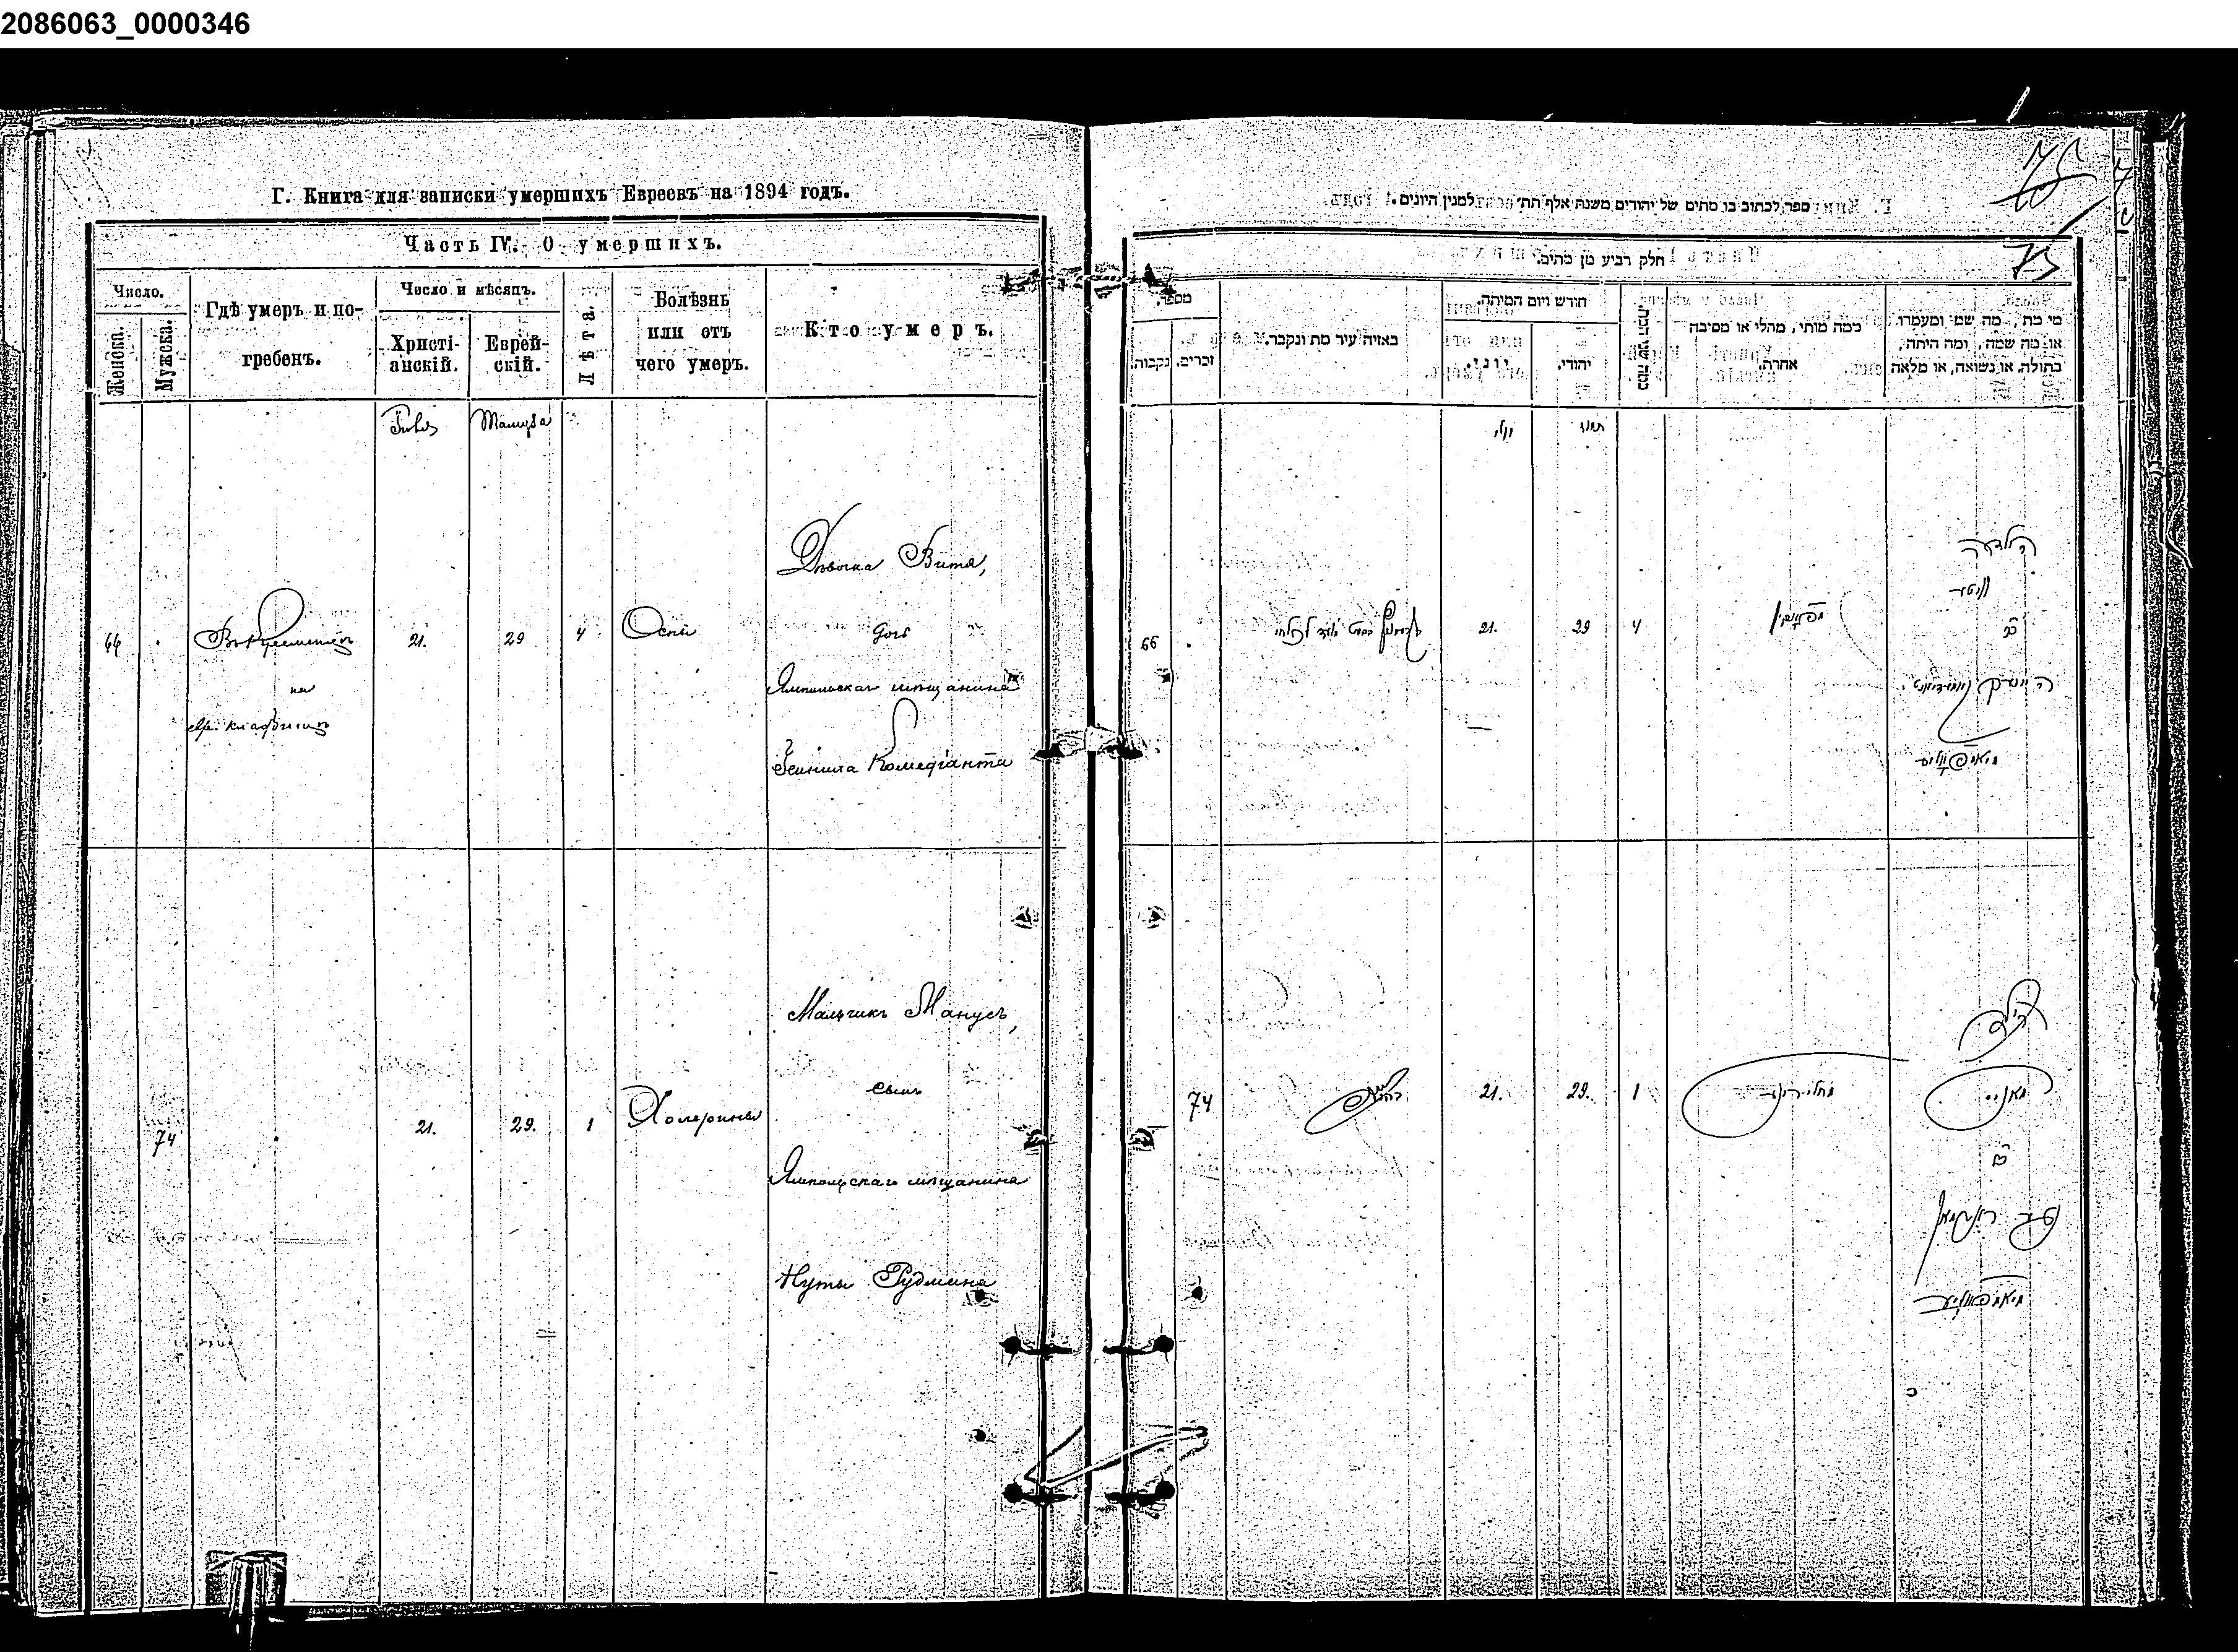 2086063_0000346
Г. Книга для записки умершихъ Евреевъ на 1894 годъ.
Часть IV. О умершихъ.
Число.
Женска.
Мужска.
Гдѣ умеръ и по-
гребенъ.
Число и мѣсяцъ.
Христі-
анскій.
Еврей-
скій.
Лѣта.
Болѣзнь
или отъ
чего умеръ.
Кто умеръ.
Тамуза
66
Въ Кременцѣ
на
евр. кладбищѣ
21.
29
4
Оспы
Дѣвочка Витя,
дочь
Ямпольскаго мѣщанина
Комедіанта
74
21.
29.
1
Холерины
Мальчикъ Манусъ,
сынъ
Ямпольскаго мѣщанина
Нуты Рудмана
ספר לכתוב בו מתים של יהודים משנת אלף תת״ למנין היונים.
חלק רביע מן מתים.
75
73
מספר.
נקבות.
זכרים.
באיזה עיר מת ונקבר.
חודש ויום המיתה.
יוני.
יהודי.
כמה שני המת.
כמה מותי, מהלי או מסיבה
אחרת.
מי מת, מה שמו ומעמדו.
או מה שמה, ומה היתה,
בתולה, או נשואה, או מלאה
יולי
תמוז
66
21.
29
4
הילדה
וויטע
בת
74
21.
29.
1
מאניס
בן